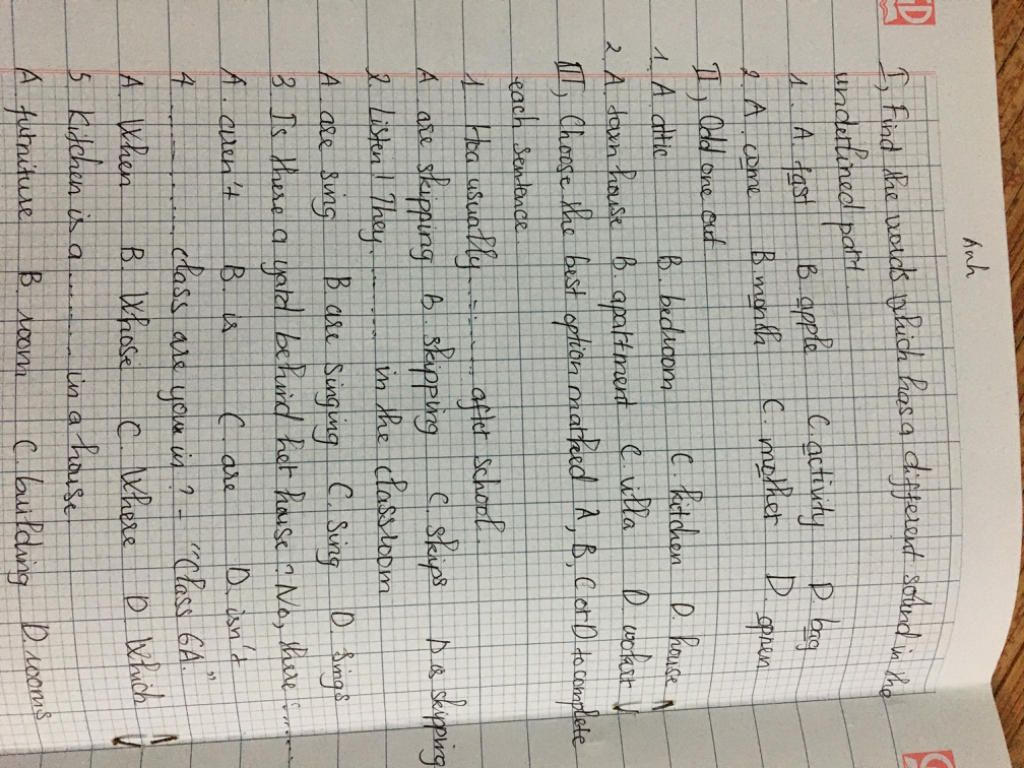 Anh
I, Find the words which has a different sound in the
underlined part.
1. A. fast B. apple C. activity D. bag
2. A. come B. month C. mother D. open
II, Odd one out
1. A. attic B. bedroom C. kitchen D. house
2. A. town house B. apartment C. villa D.
III, Choose the best option marked A, B, C or D to complete
each sentence.
1. Hoa usually ........ after school.
A are skipping B. skipping C. skips D is skipping
2. Listen! They ........ in the classroom
A are sing B are singing C. sing D. sings
3 Is there a yard behind her house? No, there ........
A. aren't B. is C. are D. isn't
4 ........ class are you in? - "Class 6A."
A When B. Whose C. Where D Which
5 Kitchen is a ........ in a house
A furniture B room C. building D. rooms